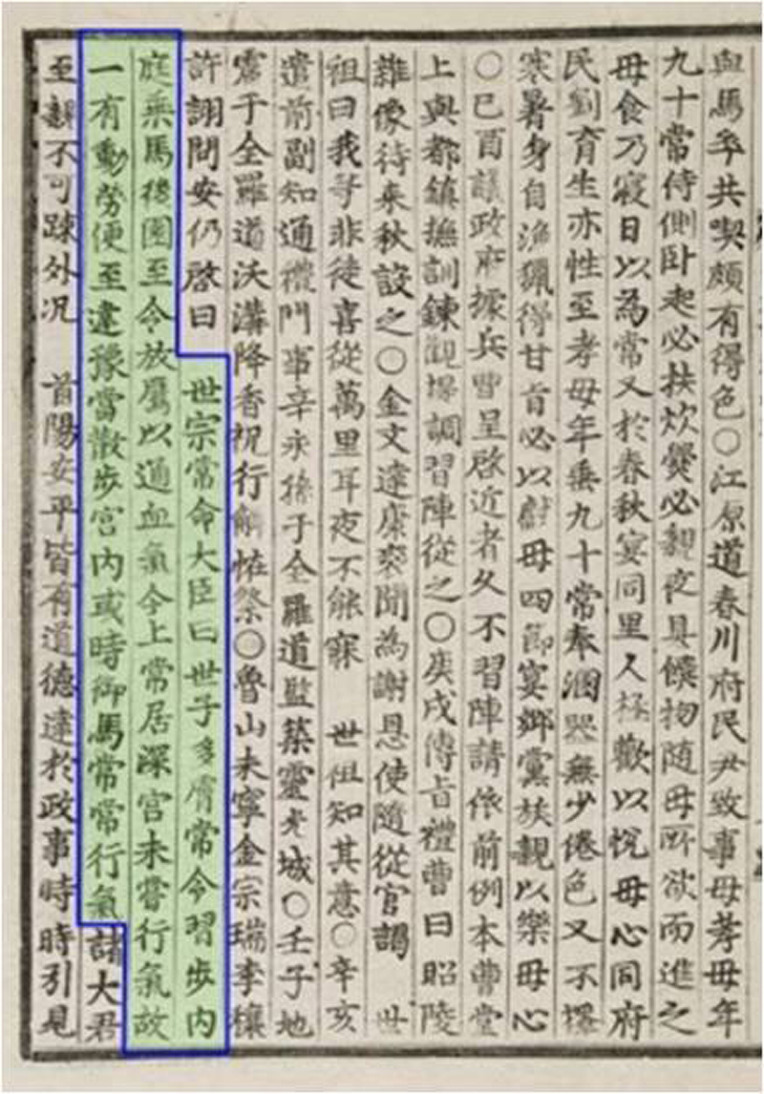 血馬卒共喫頗有得色○江原道春川府民尹致事母孝母年
九十常侍側卧起必扶炊爨必親夜具饌物随母所欲而進之
母食乃寢日以為常又於春秋宴同里人極歡以悅母心同府
民劉育生亦性至孝母年垂九十常奉溷器無少倦色又不擇
寒暑身自漁獵得甘旨必以獻母四節宴鄉黨族親以樂母心
○己酉議政府據兵曹呈啓近者久不習陣請依前例本曹堂
上與都鎮撫訓鍊觀提調習陣從之○庚戌傳旨禮曹曰昭陵
雜像待來秋設之○金文達康袞聞為謝恩使隨從官謁 世
祖曰我等非徒喜從萬里耳夜不能寐 世祖知其意○辛亥
遣前副知通禮門事辛永孫于全羅道監築靈光城○壬子地
震于全羅道沃溝降香祝行解怪祭○魯山未寧金宗瑞李穰
許詡問安仍啓曰 世宗常命大臣曰世子多膚常令習步內
庭乘馬後園至令放鷹以通血氣今上常居深宮未嘗行氣故
一有動勞便至違豫當散步宮內或時御馬常常行氣諸大君
至親不可踈外况 首陽安平皆有道德達於政事時時引見